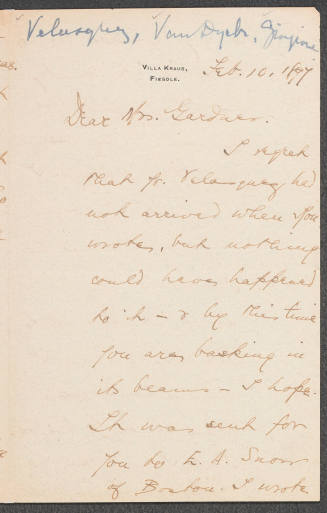 Velasquez, Van Dyck, Giorgione
VILLA KRAUS,
FIESOLE.
Feb. 10, 1897
Dear Mrs. Gardner.
I regret
that yr. Velasquez had
not arrived when you
wrote, but nothing
could have happened
to it - & by this time
you are basking in
its beams - I hope.
It was sent for
you to E. A. Snow
of Boston. I wrote